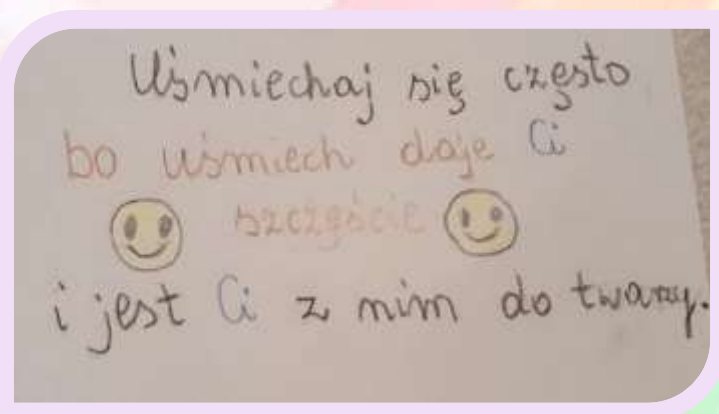 Uśmiechaj się często
bo uśmiech daje Ci
szczęście
i jest Ci z nim do twarzy.